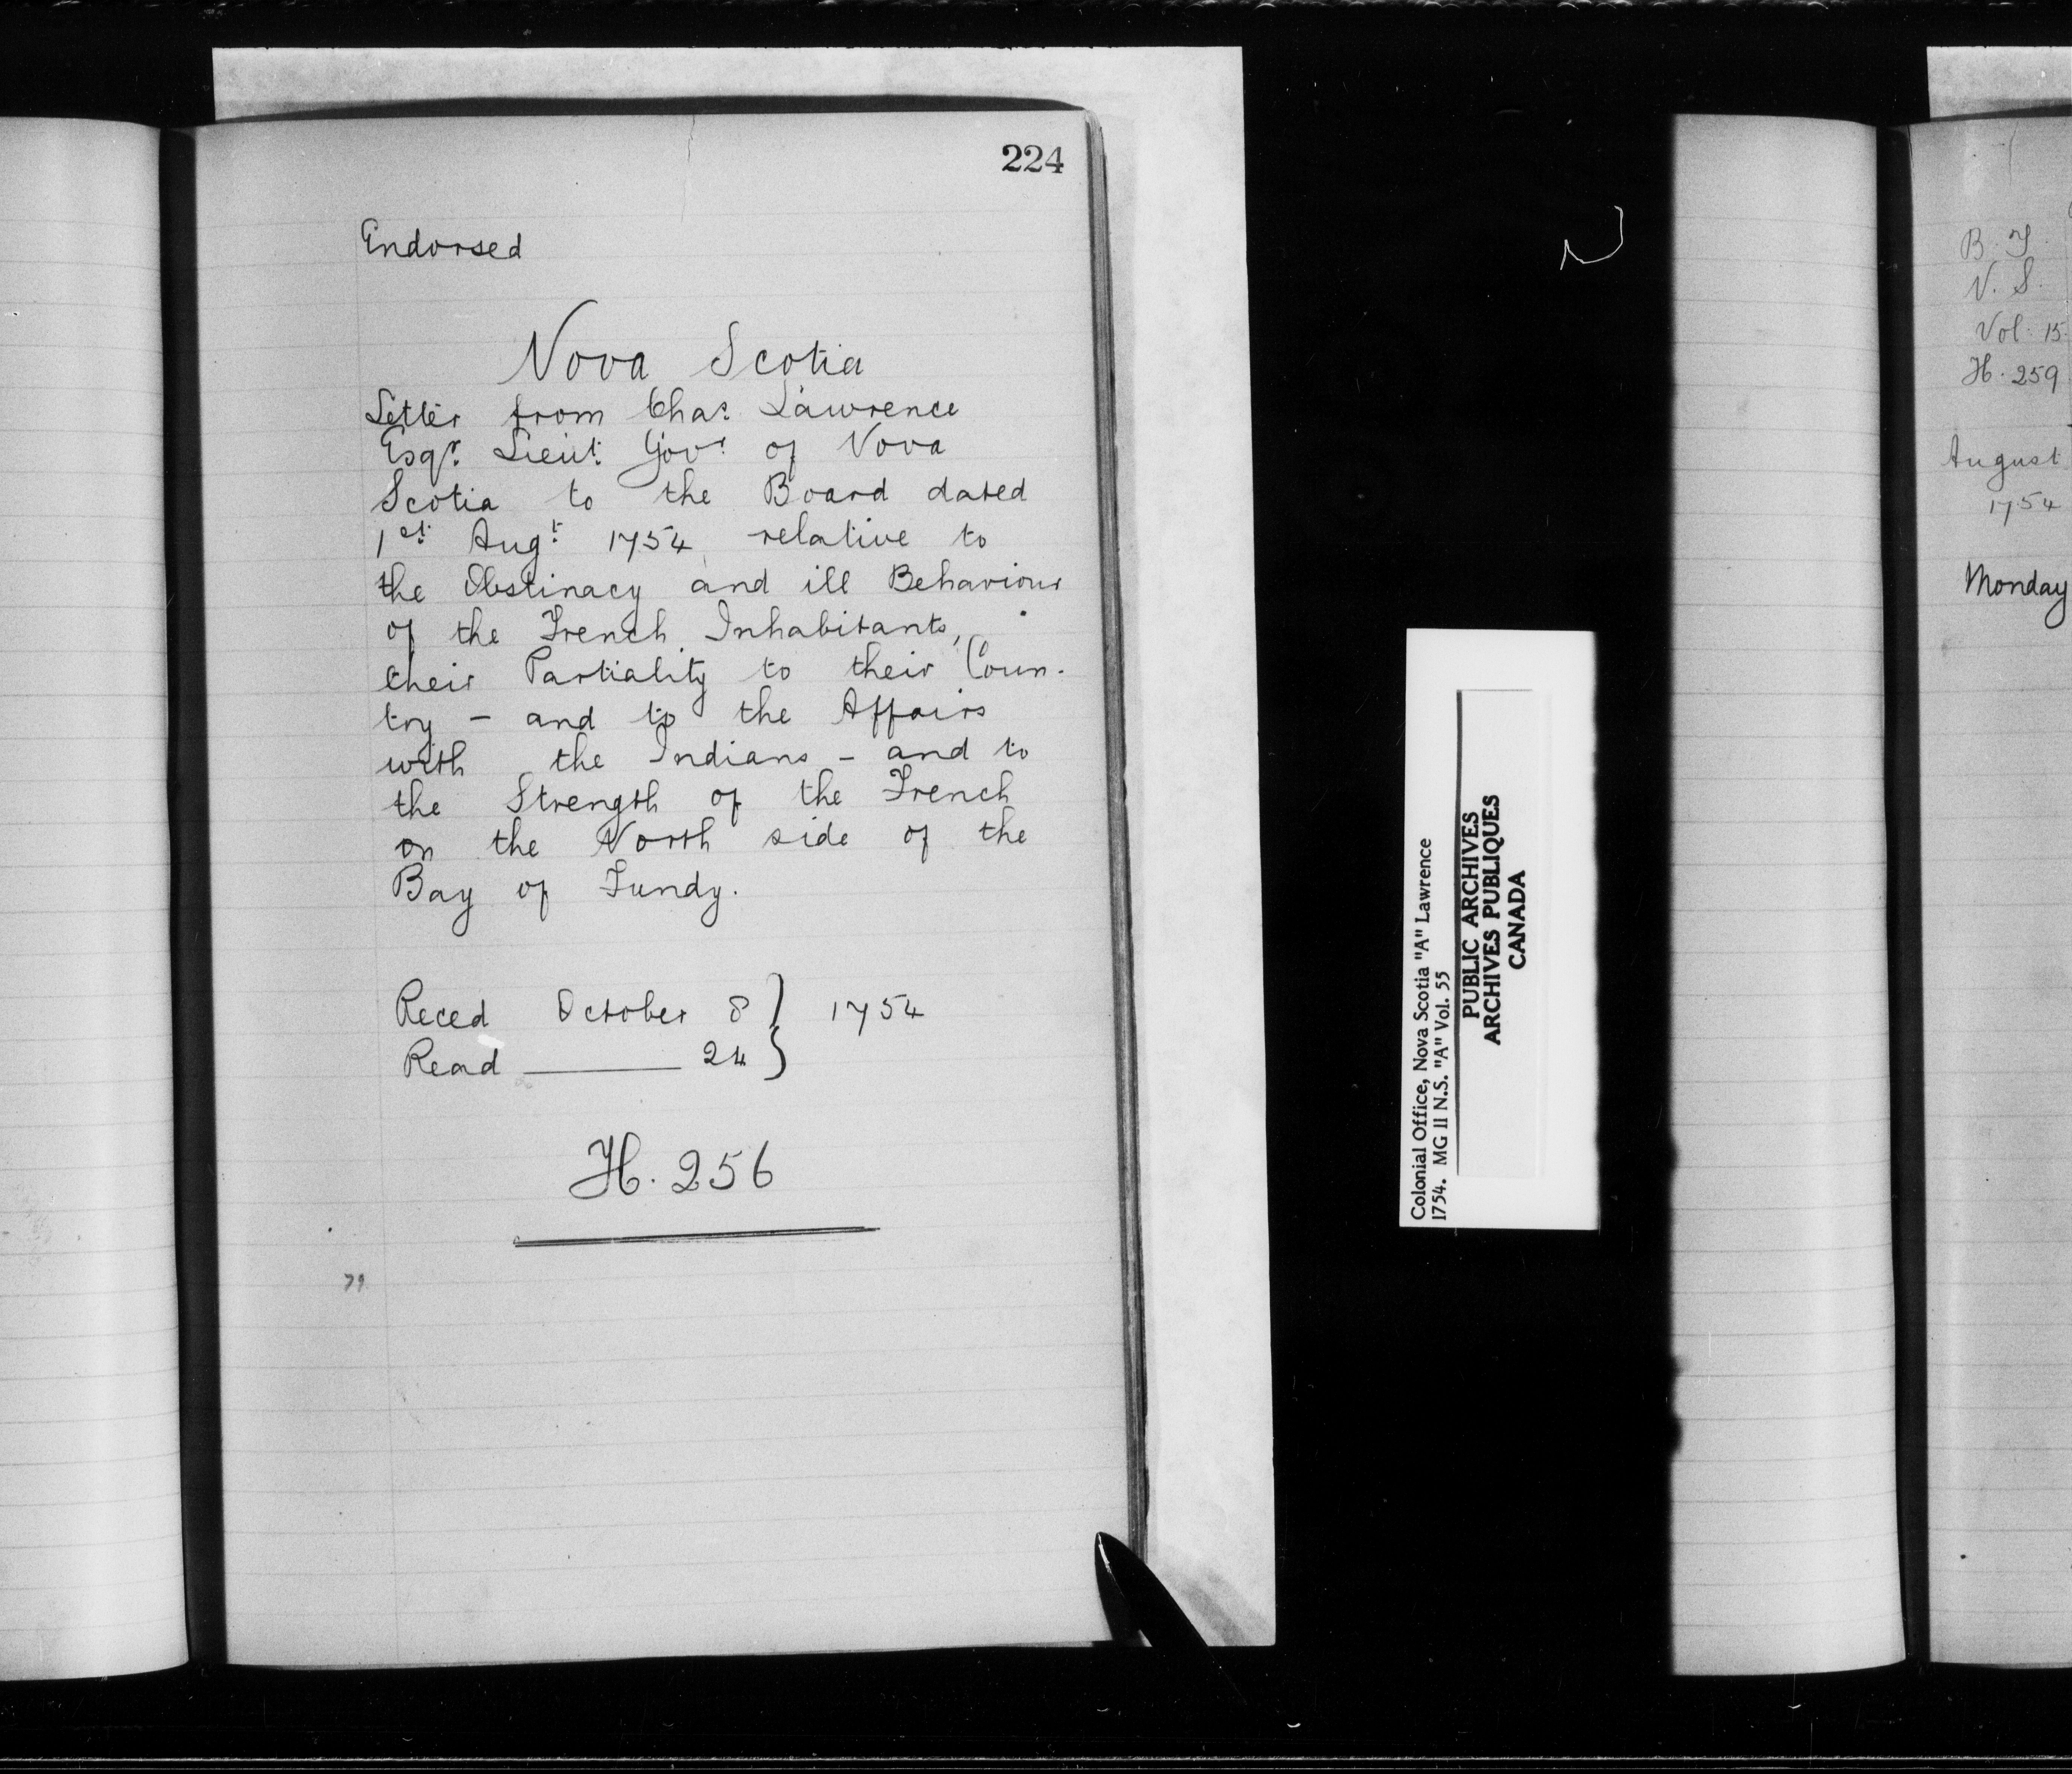 224
Endorsed
Nova Scotia
Letter from Chas. Lawrence
Esqr. Lieut. Govr. of Nova
Scotia to the Board dated
1st. Augt. 1754 relative to
the Obstinacy and ill Behaviour
of the French Inhabitants,
their Partiality to their Coun-
try - and to the Affairs
with the Indians - and to
the Strength of the French
on the North side of the
Bay of Fundy.
Reced October 8 } 1754
Read ——— 24 }
H. 256
Colonial Office, Nova Scotia "A" Lawrence
1754. MG II N.S. "A" Vol. 55
PUBLIC ARCHIVES
ARCHIVES PUBLIQUES
CANADA
B. T.
N. S.
Vol. 15
H. 259
August
1754
Monday